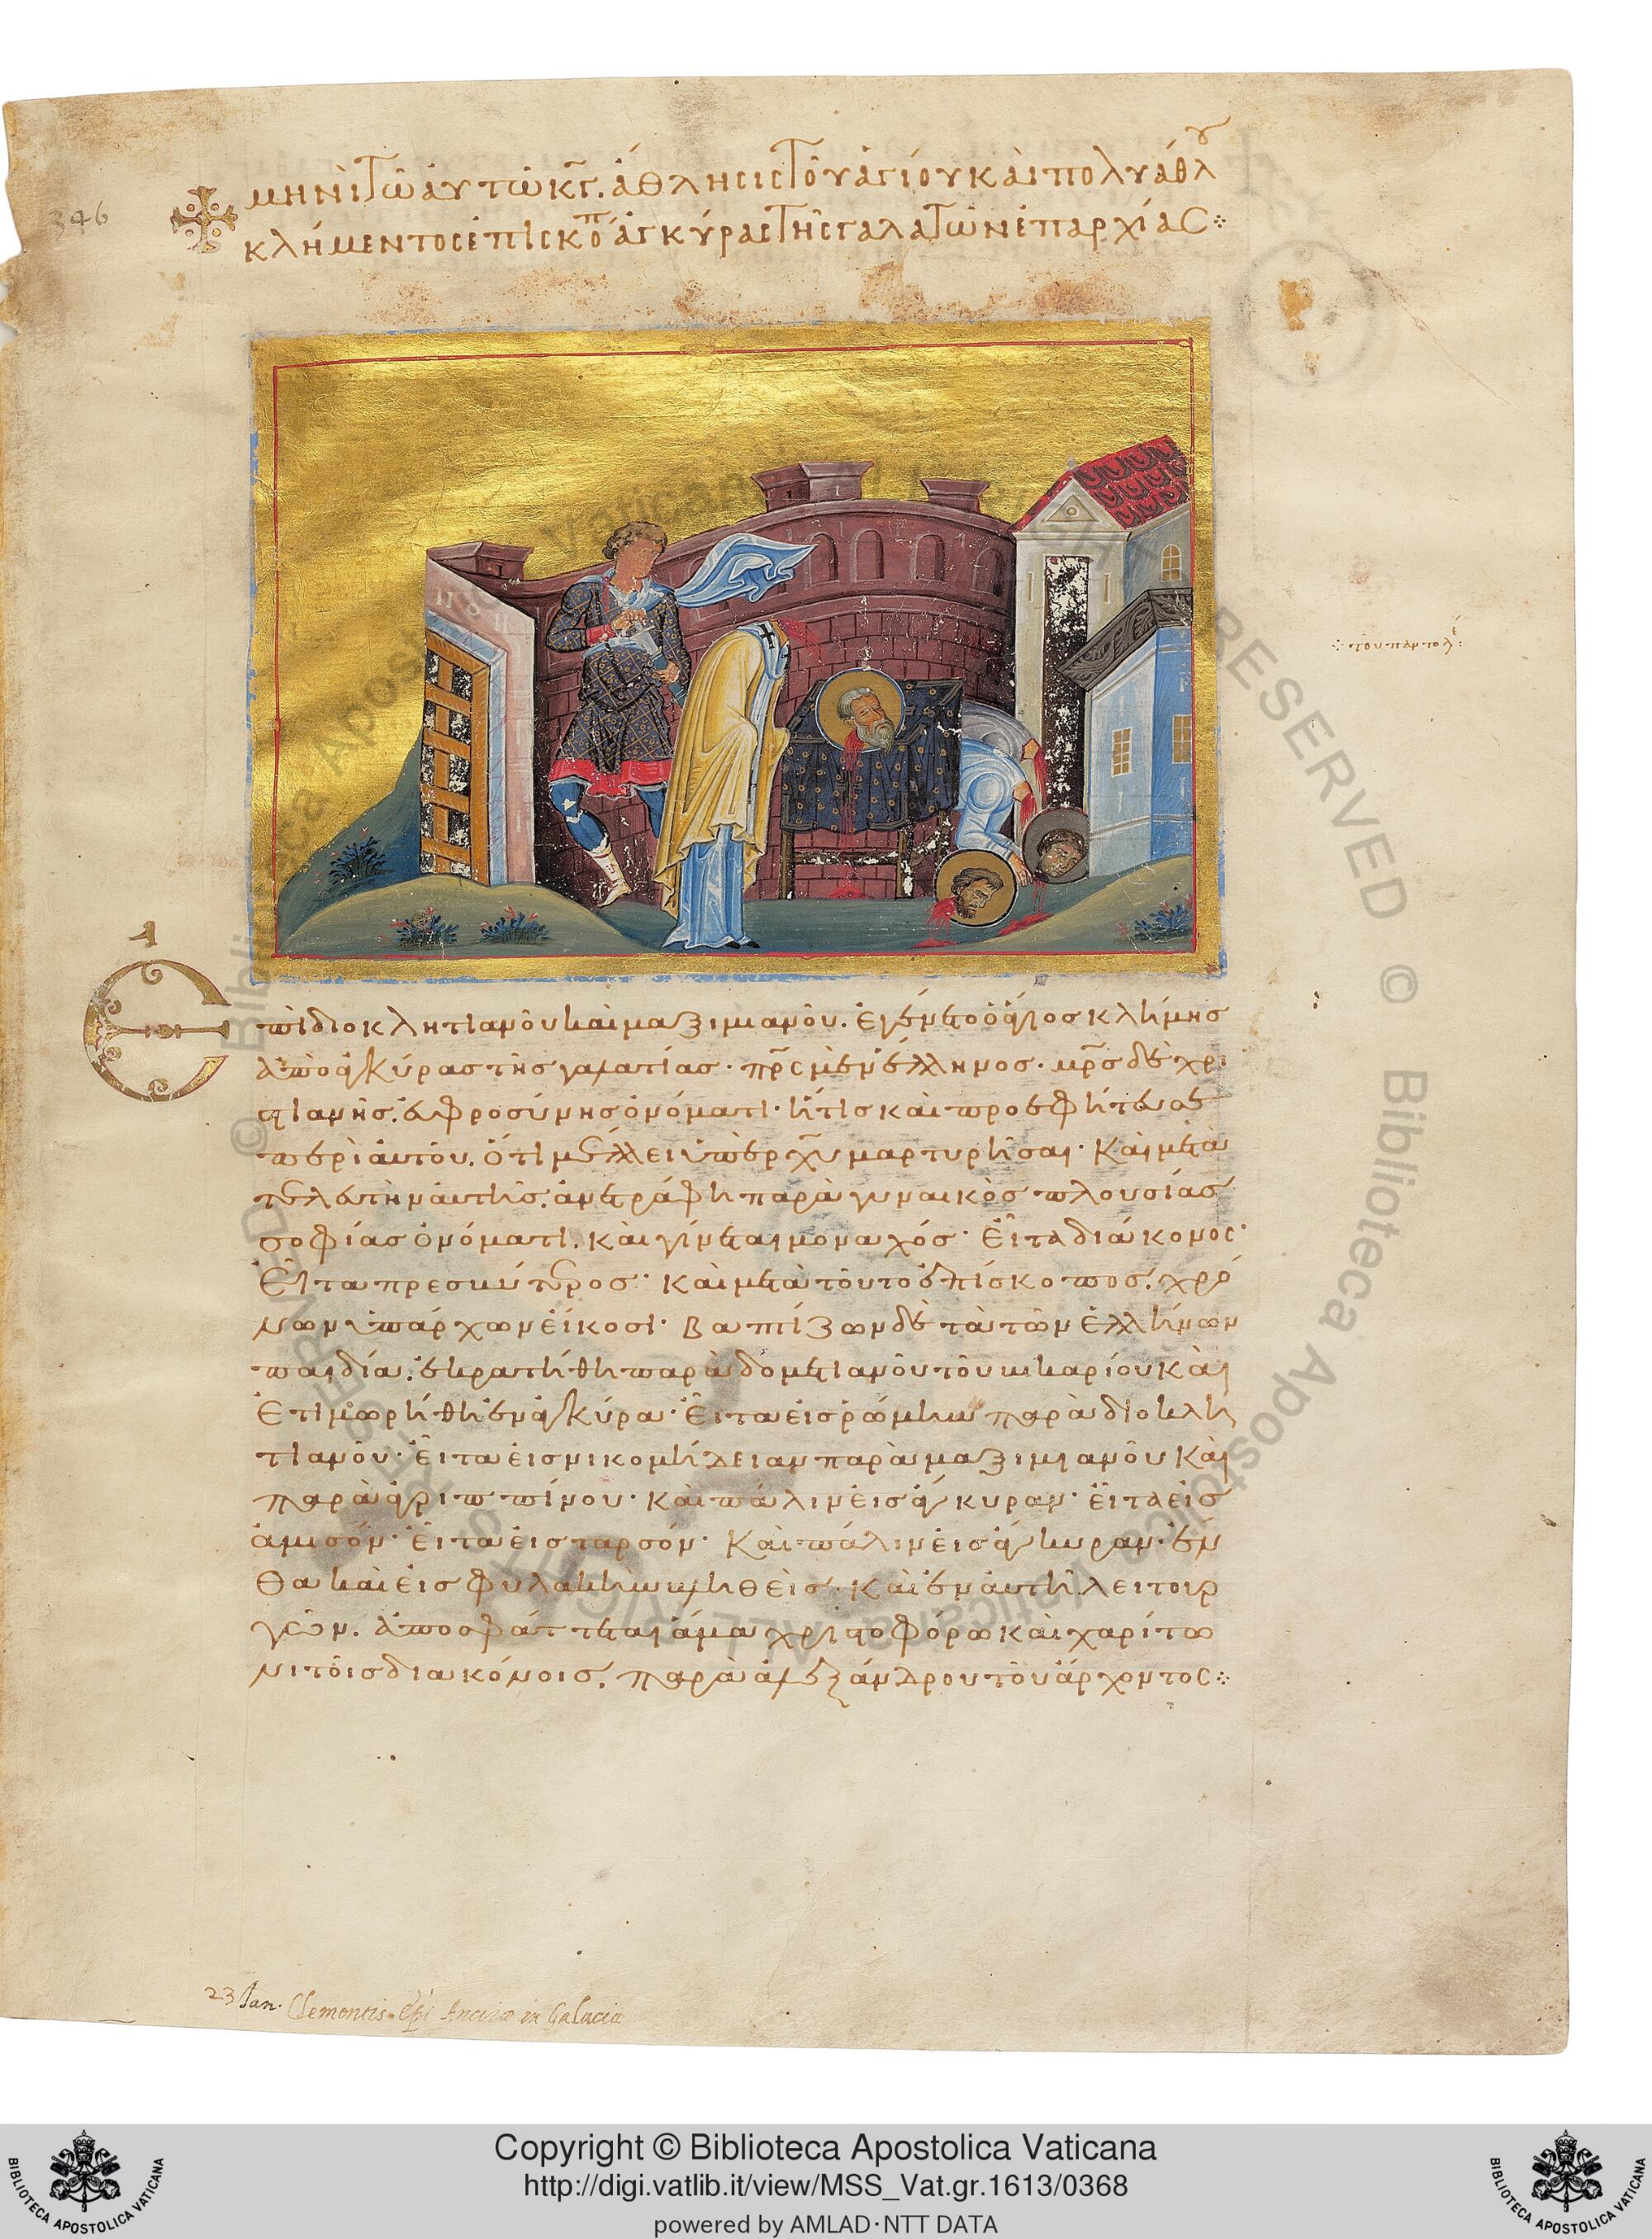 346
μηνὶ τῶ αὐτῶ κγ. ἄθλησις τοῦ ἁγίου καὶ πολυάθλου
κλήμεντος ἐπισκόπ ἀγκύρας τῆς γαλατῶν ἐπαρχίας ⁘
⁘ τοῦ παντολέ:
Ἐπὶ διοκλητιανοῦ καὶ μαξιμιανοῦ. ἐγένετο ὁ ἅγιος κλήμης
ἀπὸ ἀγκύρας τῆς γαλατίας· πρς μὲν ἕλληνος· μρς δὲ χρι
στιανῆς. εὐφροσύνης ὀνόματι· ἥτις καὶ προεφήτευσε
περὶ αὐτοῦ. ὅτι μέλλει ὑπὲρ χυ μαρτυρῆσαι· Καὶ μετὰ
τελευτὴν αὐτῆς. ἀνετράφη παρὰ γυναικὸς πλουσίας
σοφίας ὀνόματι. καὶ γίνεται μοναχός· Εἶτα διάκονος·
Εἶτα πρεσβύτερος· καὶ μετὰ τοῦτο ἐπίσκοπος. χρό
νων ὑπάρχων εἴκοσι· Βαπτίζων δὲ τὰ τῶν Ἑλλήνων
παιδία. ἐκρατήθη παρὰ δομετιανοῦ τοῦ βικαρίου καὶ
ἐτιμωρήθη ἐν ἀγκύρα· Εἶτα εἰς ῥώμην παρὰ διοκλη
τιανοῦ· Εἶτα εἰς νικομήδειαν παρὰ μαξιμιανοῦ καὶ
παρὰ ἀγριππίνου· καὶ πάλιν εἰς ἄγκυραν· Εἶτα εἰς
ἀμισόν· Εἶτα εἰς ταρσόν· Καὶ πάλιν εἰς ἄγκυραν· ἔν
θα καὶ εἰς φυλακὴν βληθεὶς· καὶ ἐν αὐτῆ λειτουρ
γῶν. ἀποσφάττεται ἅμα χριστοφόρω καὶ χαρίτω
νι τοῖς διακόνοις. παρὰ ἀλεξάνδρου τοῦ ἄρχοντος ⁘
23 Jan. Clementis epi Ancirae in Galacia
© Biblioteca Apostolica Vaticana ALL RIGHTS RESERVED
Copyright © Biblioteca Apostolica Vaticana
http://digi.vatlib.it/view/MSS_Vat.gr.1613/0368
powered by AMLAD·NTT DATA
BIBLIOTECA APOSTOLICA VATICANA
BIBLIOTECA APOSTOLICA VATICANA